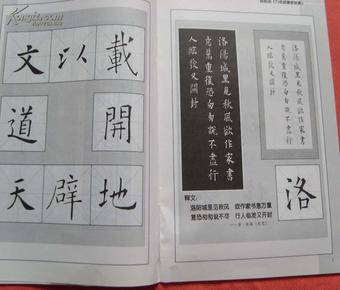 文以載
道 開
天辟地
洛陽城里見秋風欲作家書
意萬重復恐匆匆說不盡行
人臨發又開封
洛陽城里見秋風欲作家書
意萬重復恐匆匆說不盡行
人臨發又開封
洛
释文：
洛阳城里见秋风 欲作家书意万重
复恐匆匆说不尽 行人临发又开封
——唐·张籍《秋思》